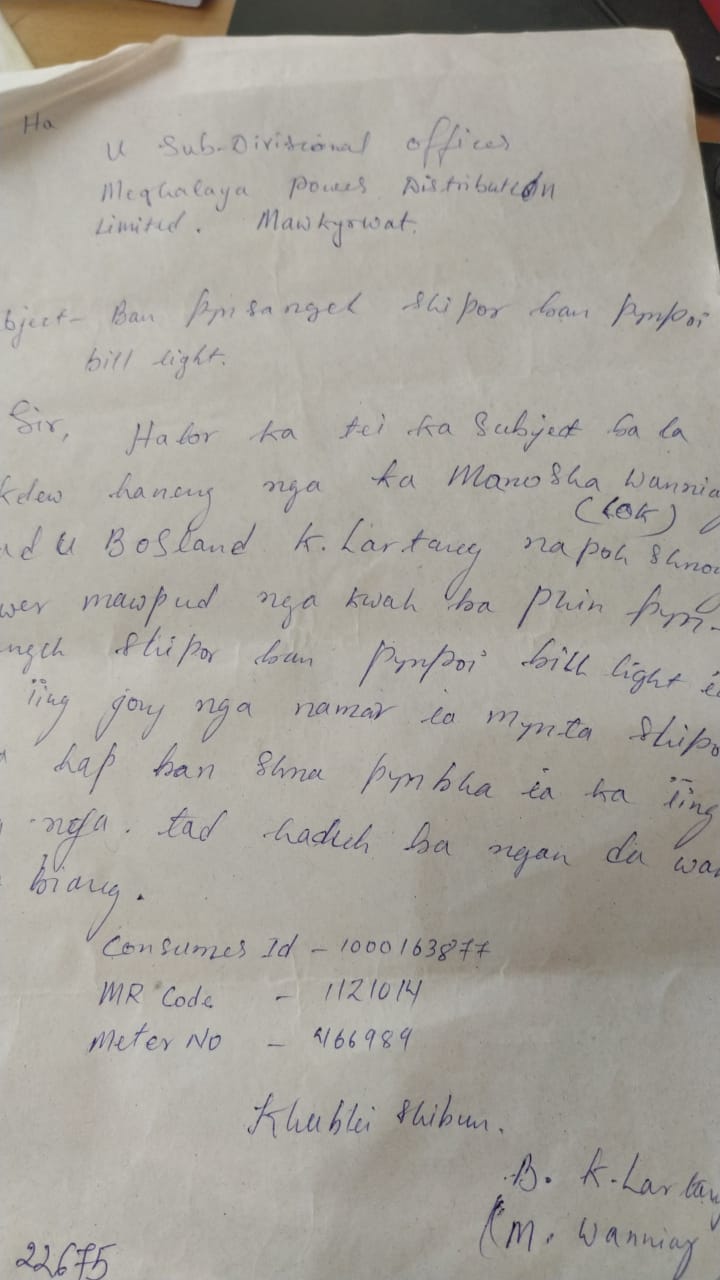 Ha
U Sub-Divisional officer
Meghalaya Power Distribution
Limited. Mawkyrwat.
bject- Ban pynsangeh shipor ban pynpoi
bill light.
Sir, Halor ka tei ka Subject ba la
kdew haneng nga ka Manosha Wannia
(LOK)
ad U Bosland K. Lartang na poh shno
wer mawpud nga kwah ba phin pyn-
ngeh shipor ban pynpoi bill light ia
iing jong nga namar ia mynta shipo
hap ban shna pynbha ia ka iing
nga. tad haduh ba ngan da wa
biang.
Consumer Id - 1000163877
MR Code - 1121014
Meter No - 466989
Khublei shibun.
B. K. Lartan
(M. Wanniang
22675